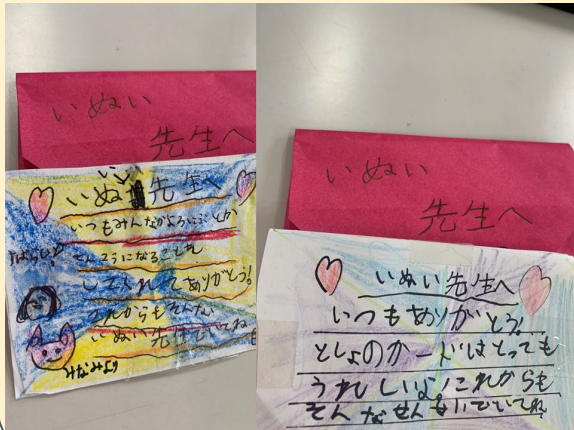 いぬい
先生へ
いぬい先生へ
いつもみんながよろこぶとか
になることを
してくれてありがとう!
これからもそんな
いぬい先生でいてね
みなみより
いぬい
先生へ
いぬい先生へ
いつもありがとう!
としょのカードはとっても
うれしいよ!これからも
そんなせんせいでいてね